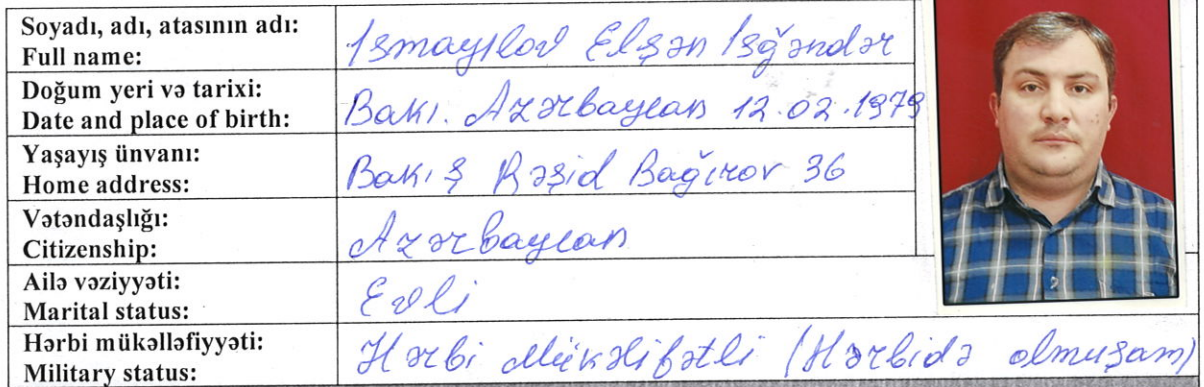 Soyadı, adı, atasının adı:
Full name:
Ismayılov Elşən Isğəndər
Doğum yeri və tarixi:
Date and place of birth:
Bakı. Azərbaycan 12.02.1979
Yaşayış ünvanı:
Home address:
Bakı ş Rəşid Bağırov 36
Vətəndaşlığı:
Citizenship:
Azərbaycan
Ailə vəziyyəti:
Marital status:
Evli
Hərbi mükəlləfiyyəti:
Military status:
Hərbi Mükəlifətli (Hərbidə olmuşam)